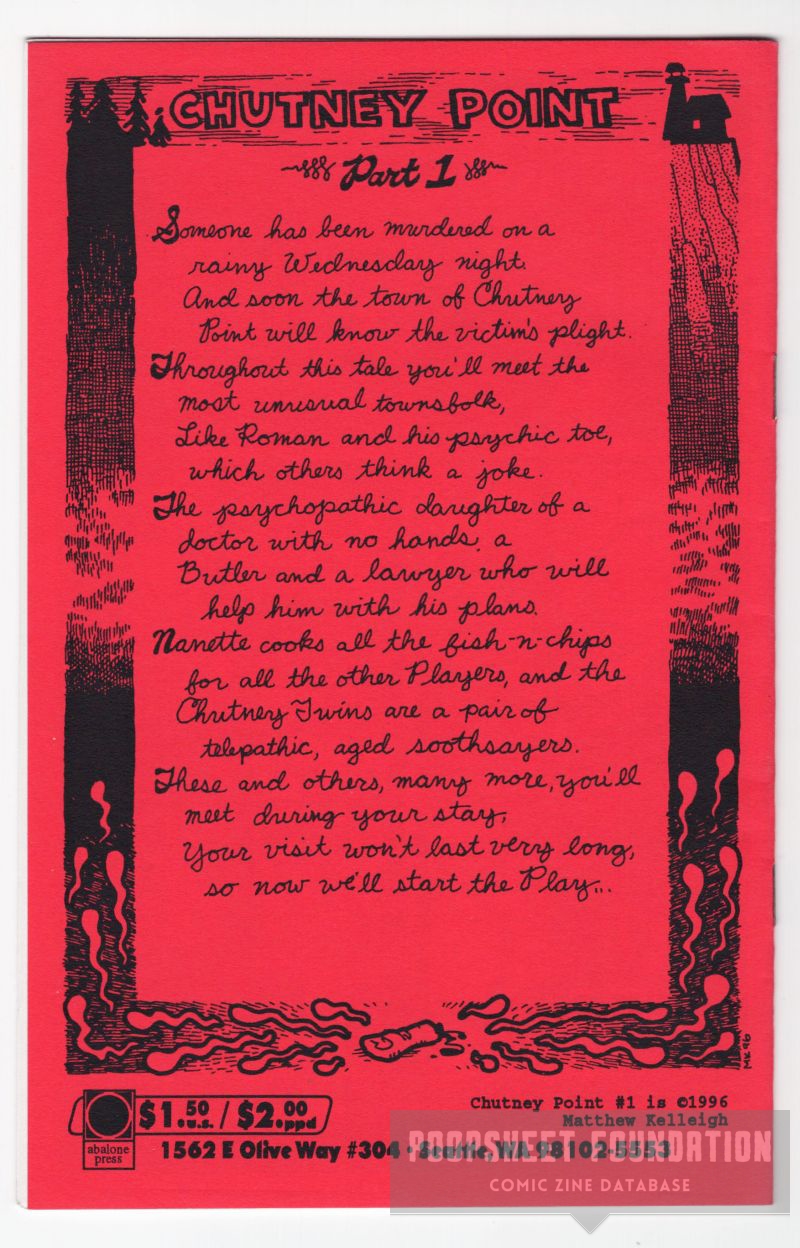 CHUTNEY POINT
Part 1
Someone has been murdered on a
rainy Wednesday night.
And soon the town of Chutney
Point will know the victim's plight.
Throughout this tale you'll meet the
most unusual townsfolk,
Like Roman and his psychic toe,
which others think a joke.
The psychopathic daughter of a
doctor with no hands, a
Butler and a lawyer who will
help him with his plans.
Nanette cooks all the fish-n-chips
for all the other Players, and the
Chutney Twins are a pair of
telepathic, aged soothsayers.
These and others, many more, you'll
meet during your stay,
Your visit won't last very long,
so now we'll start the Play...
MK96
$1.50 u.s. / $2.00 ppd
abalone
press
Chutney Point #1 is ©1996
Matthew Kelleigh
1562 E Olive Way #304 · Seattle, WA 98102-5553
POOPSHEET FOUNDATION
COMIC ZINE DATABASE